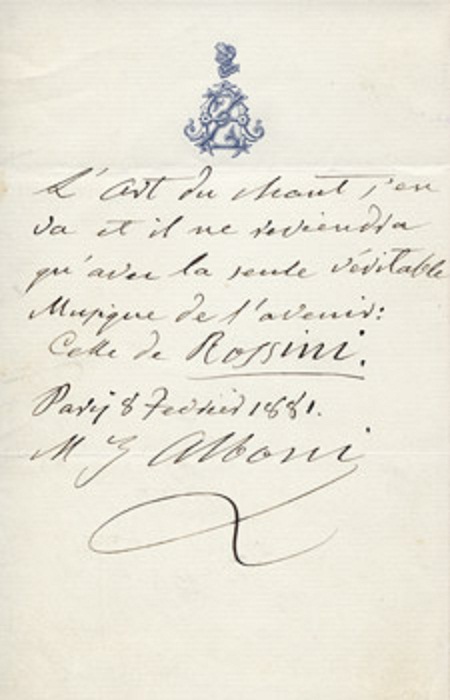 L'Art du chant s'en
va et il ne reviendra
qu'avec la seule véritable
Musique de l'avenir:
Celle de Rossini.
Paris 8 Février 1881.
M Z Alboni